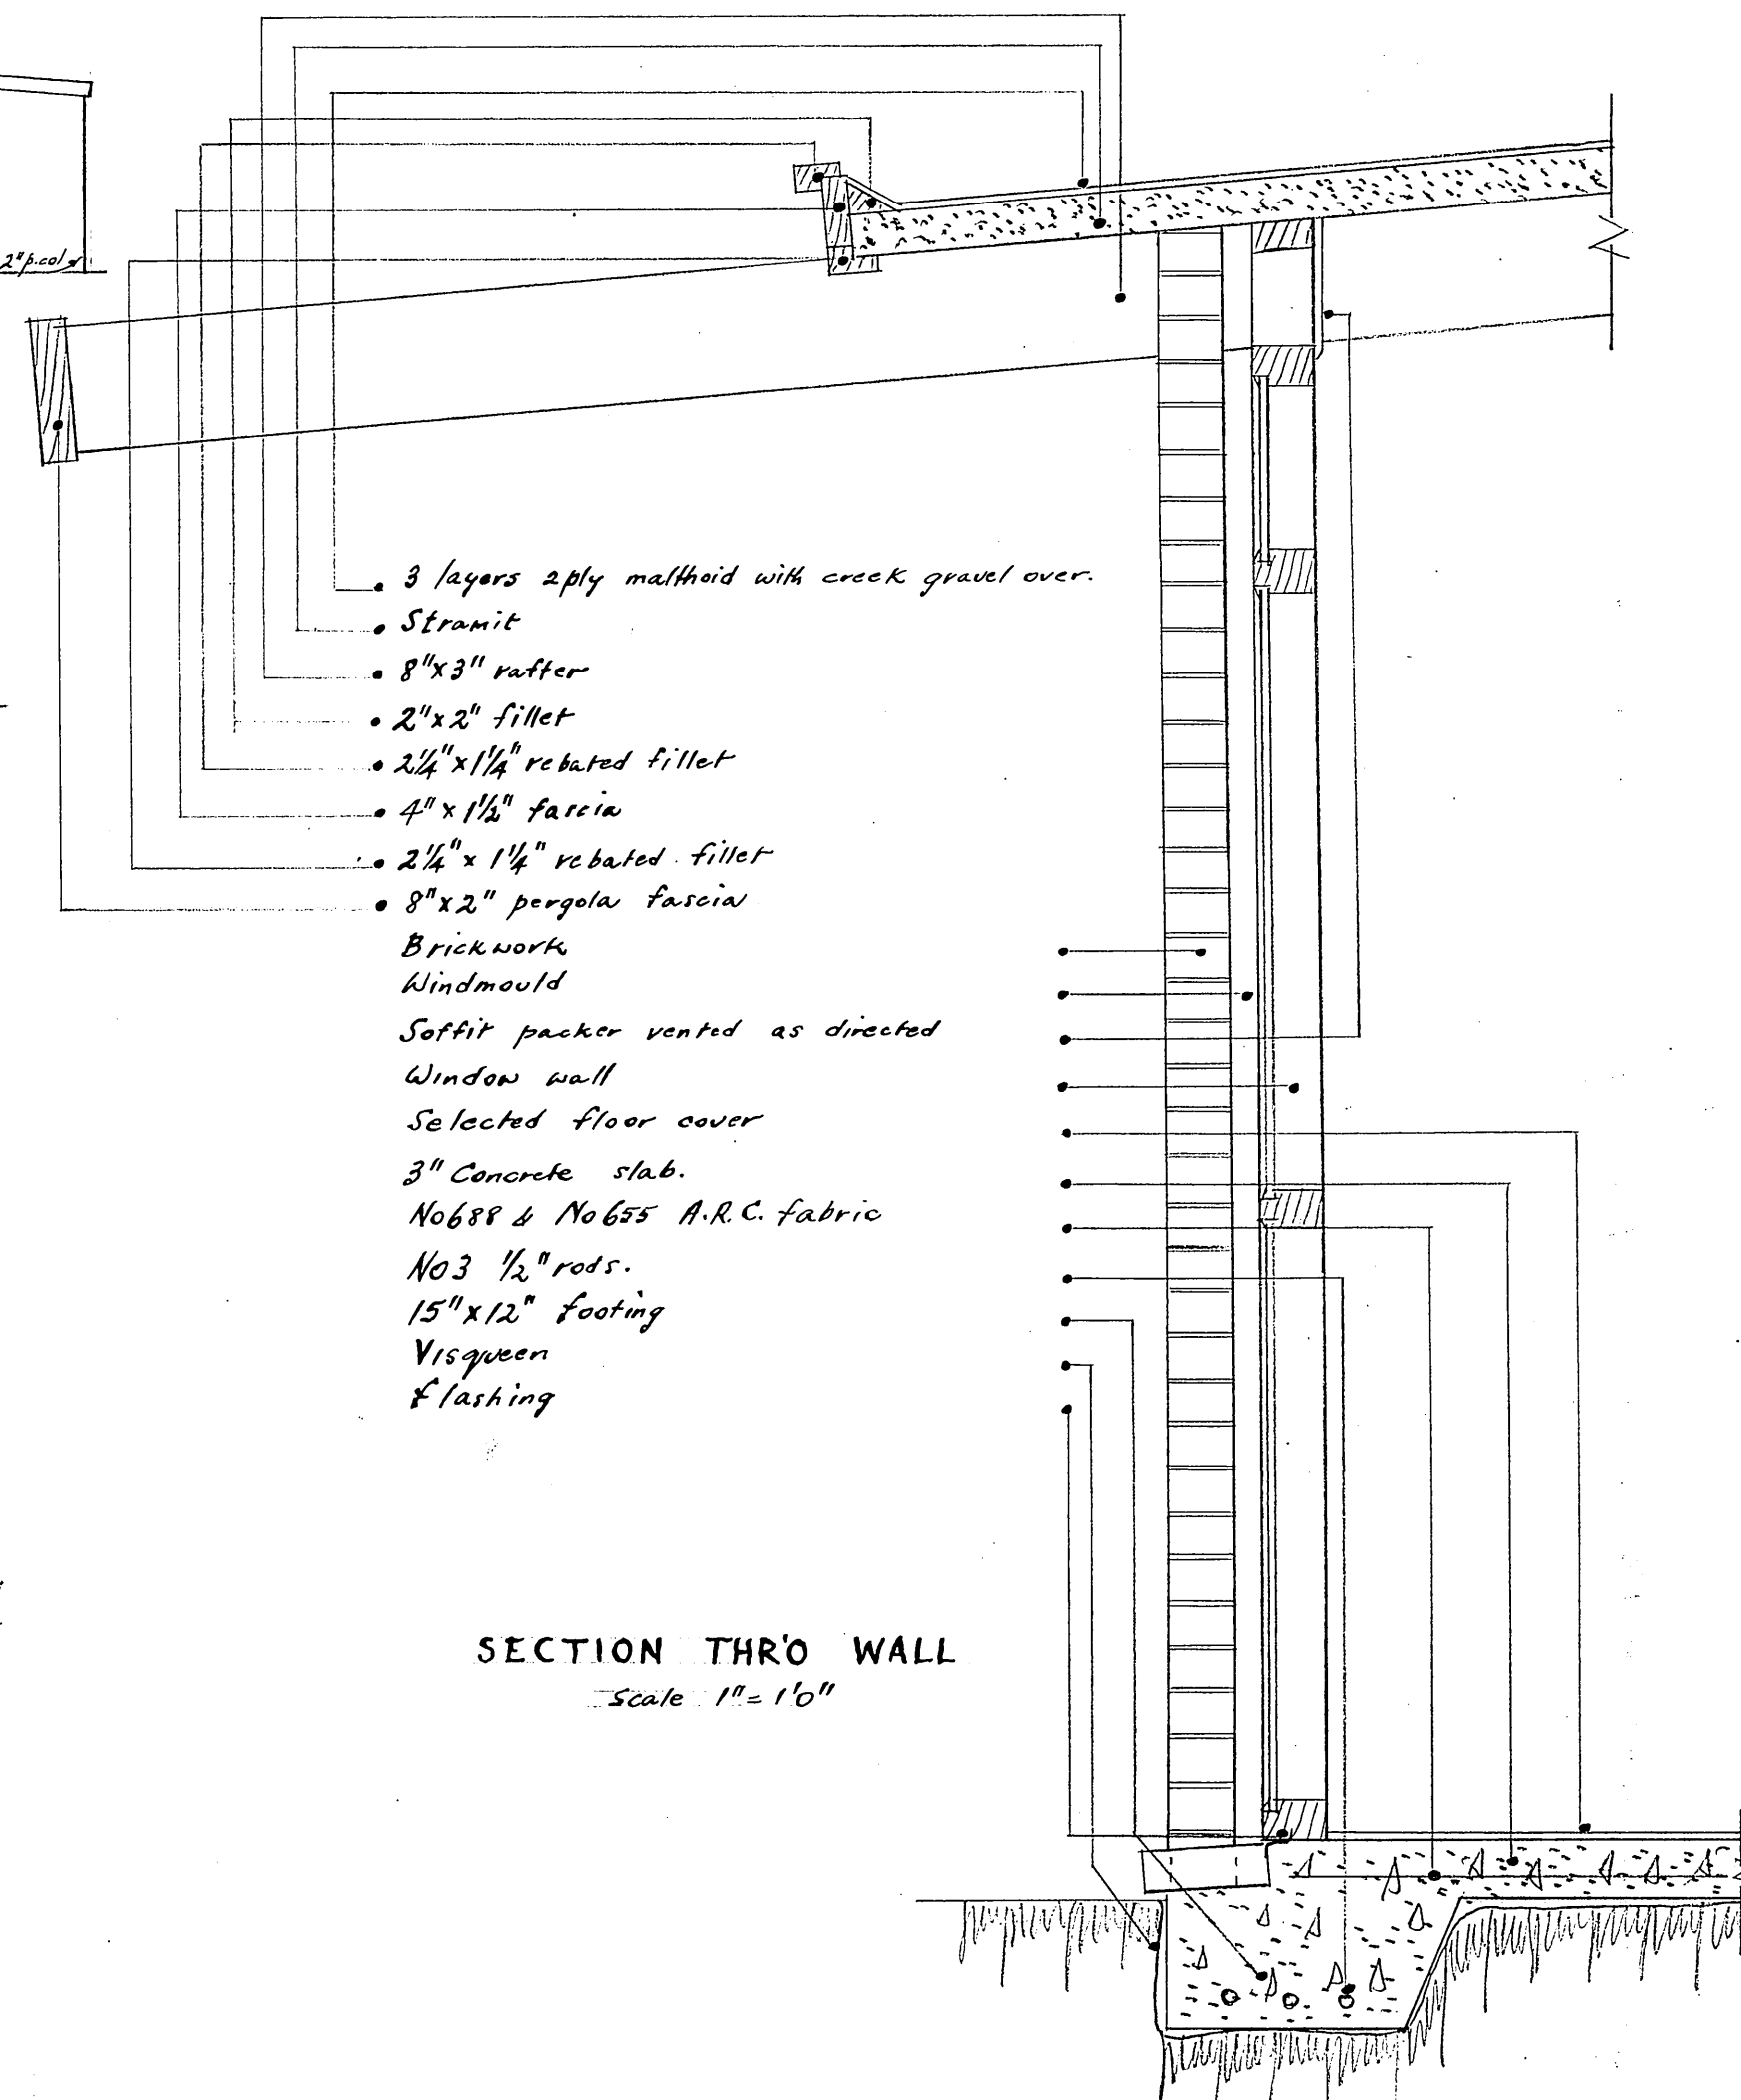 2" p.col
3 layers 2ply malthoid with creek gravel over.
Stramit
8"x3" rafter
2"x2" fillet
2¼"x1¼" rebated fillet
4"x1½" fascia
2¼"x1¼" rebated fillet
8"x2" pergola fascia
Brickwork
Windmould
Soffit packer vented as directed
Window wall
Selected floor cover
3" Concrete slab.
No688 & No655 A.R.C. fabric
No3 ½" rods.
15"x12" footing
Visqueen
Flashing
SECTION THR'O WALL
Scale 1"=1'0"